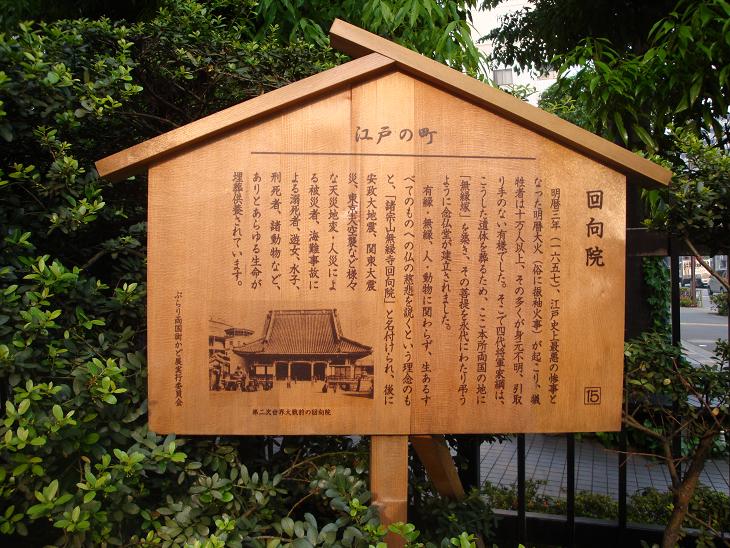 江戸の町
回向院
明暦三年(一六五七)、江戸史上最悪の惨事と
なった明暦大火(俗に振袖火事)が起こり、犠
牲者は十万人以上、その多くが身元不明、引取
り手のない有様でした。そこで四代将軍家綱は、
こうした遺体を葬るため、ここ本所両国の地に
「無縁塚」を築き、その菩提を永代にわたり弔う
ように念仏堂が建立されました。
有縁・無縁、人・動物に関わらず、生あるす
べてのものへの仏の慈悲を説くという理念のも
と、「諸宗山無縁寺回向院」と名付けられ、後に
安政大地震、関東大震
災、東京大空襲など様々
な天災地変・人災によ
る被災者、海難事故に
よる溺死者、遊女、水子、
刑死者、諸動物など、
ありとあらゆる生命が
埋葬供養されています。
ぶらり両国街かど展実行委員会
第二次世界大戦前の回向院
15